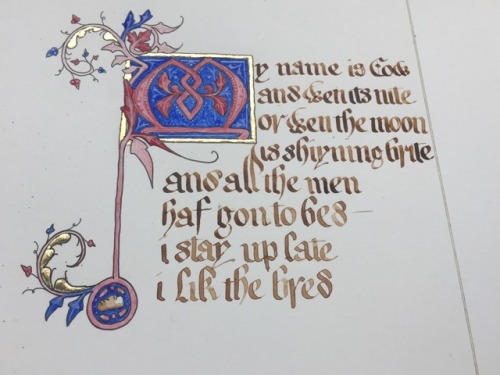 My name is Cow
and wen its nite
or wen the moon
is shiyning brite
and all the men
haf gon to bed –
i stay up late
i lik the bred